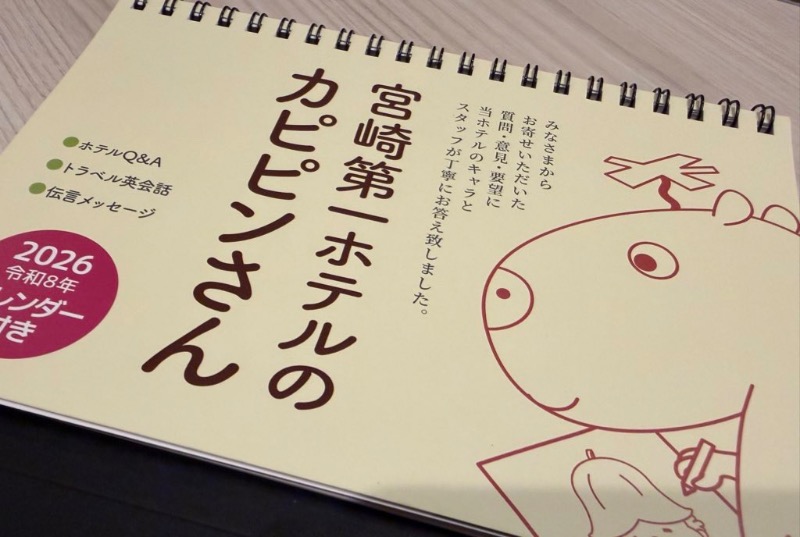 みなさまから
お寄せいただいた
質問・意見・要望に
当ホテルのキャラと
スタッフが丁寧にお答え致しました。
宮崎第一ホテルの
カピピンさん
●ホテルQ&A
●トラベル英会話
●伝言メッセージ
2026
令和8年
レンダー
付き